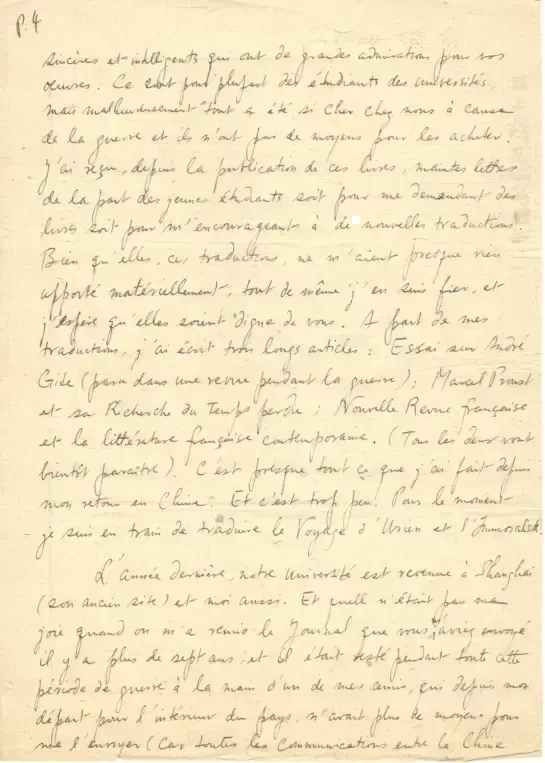 P. 4
sincères et intelligents qui ont de grandes admirations pour vos
oeuvres. Ce sont pour plupart des étudiants des universités,
mais malheureusement tout a été si cher chez nous à cause
de la guerre et ils n'ont pas de moyens pour les acheter.
J'ai reçu, depuis la publication de ces livres, maintes lettres
de la part des jeunes étudiants soit pour me demandant des
livres soit pour m'encourageant à de nouvelles traductions.
Bien qu'elles, ces traductions, ne m'aient presque rien
apporté matériellement, tout de même j'en suis fier, et
j'espère qu'elles soient digne de vous. A part de mes
traductions, j'ai écrit trois longs articles : Essai sur André
Gide (paru dans une revue pendant la guerre) ; Marcel Proust
et sa Recherche du Temps perdu ; Nouvelle Revue française
et la littérature française contemporaine. (Tous les deux vont
bientôt paraître). C'est presque tout ce que j'ai fait depuis
mon retour en Chine. Et c'est trop peu. Pour le moment
je suis en train de traduire le Voyage d'Urien et l'Immoraliste.
L'année dernière, notre Université est revenue à Shanghai
(son ancien site) et moi aussi. Et quelle n'était pas ma
joie quand on m'a remis le Journal que vous m'aviez envoyé
il y a plus de sept ans ; et il était resté pendant toute cette
période de guerre à la main d'un de mes amis, qui depuis mon
départ pour l'intérieur du pays, n'avait plus de moyens pour
me l'envoyer (car toutes les communications entre la Chine